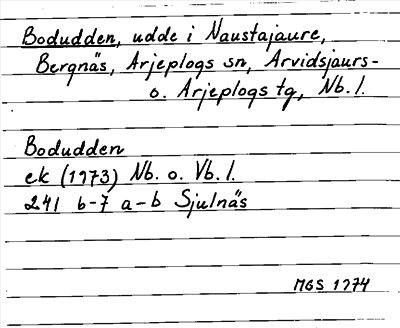 Bodudden, udde i Naustajaure,
Bergnäs, Arjeplogs sn, Arvidsjaurs-
o. Arjeplogs tg, Nb. l.
Bodudden
ek (1973) Nb. o. Vb. l.
24I b-7 a-b Sjulnäs
MGS 1974